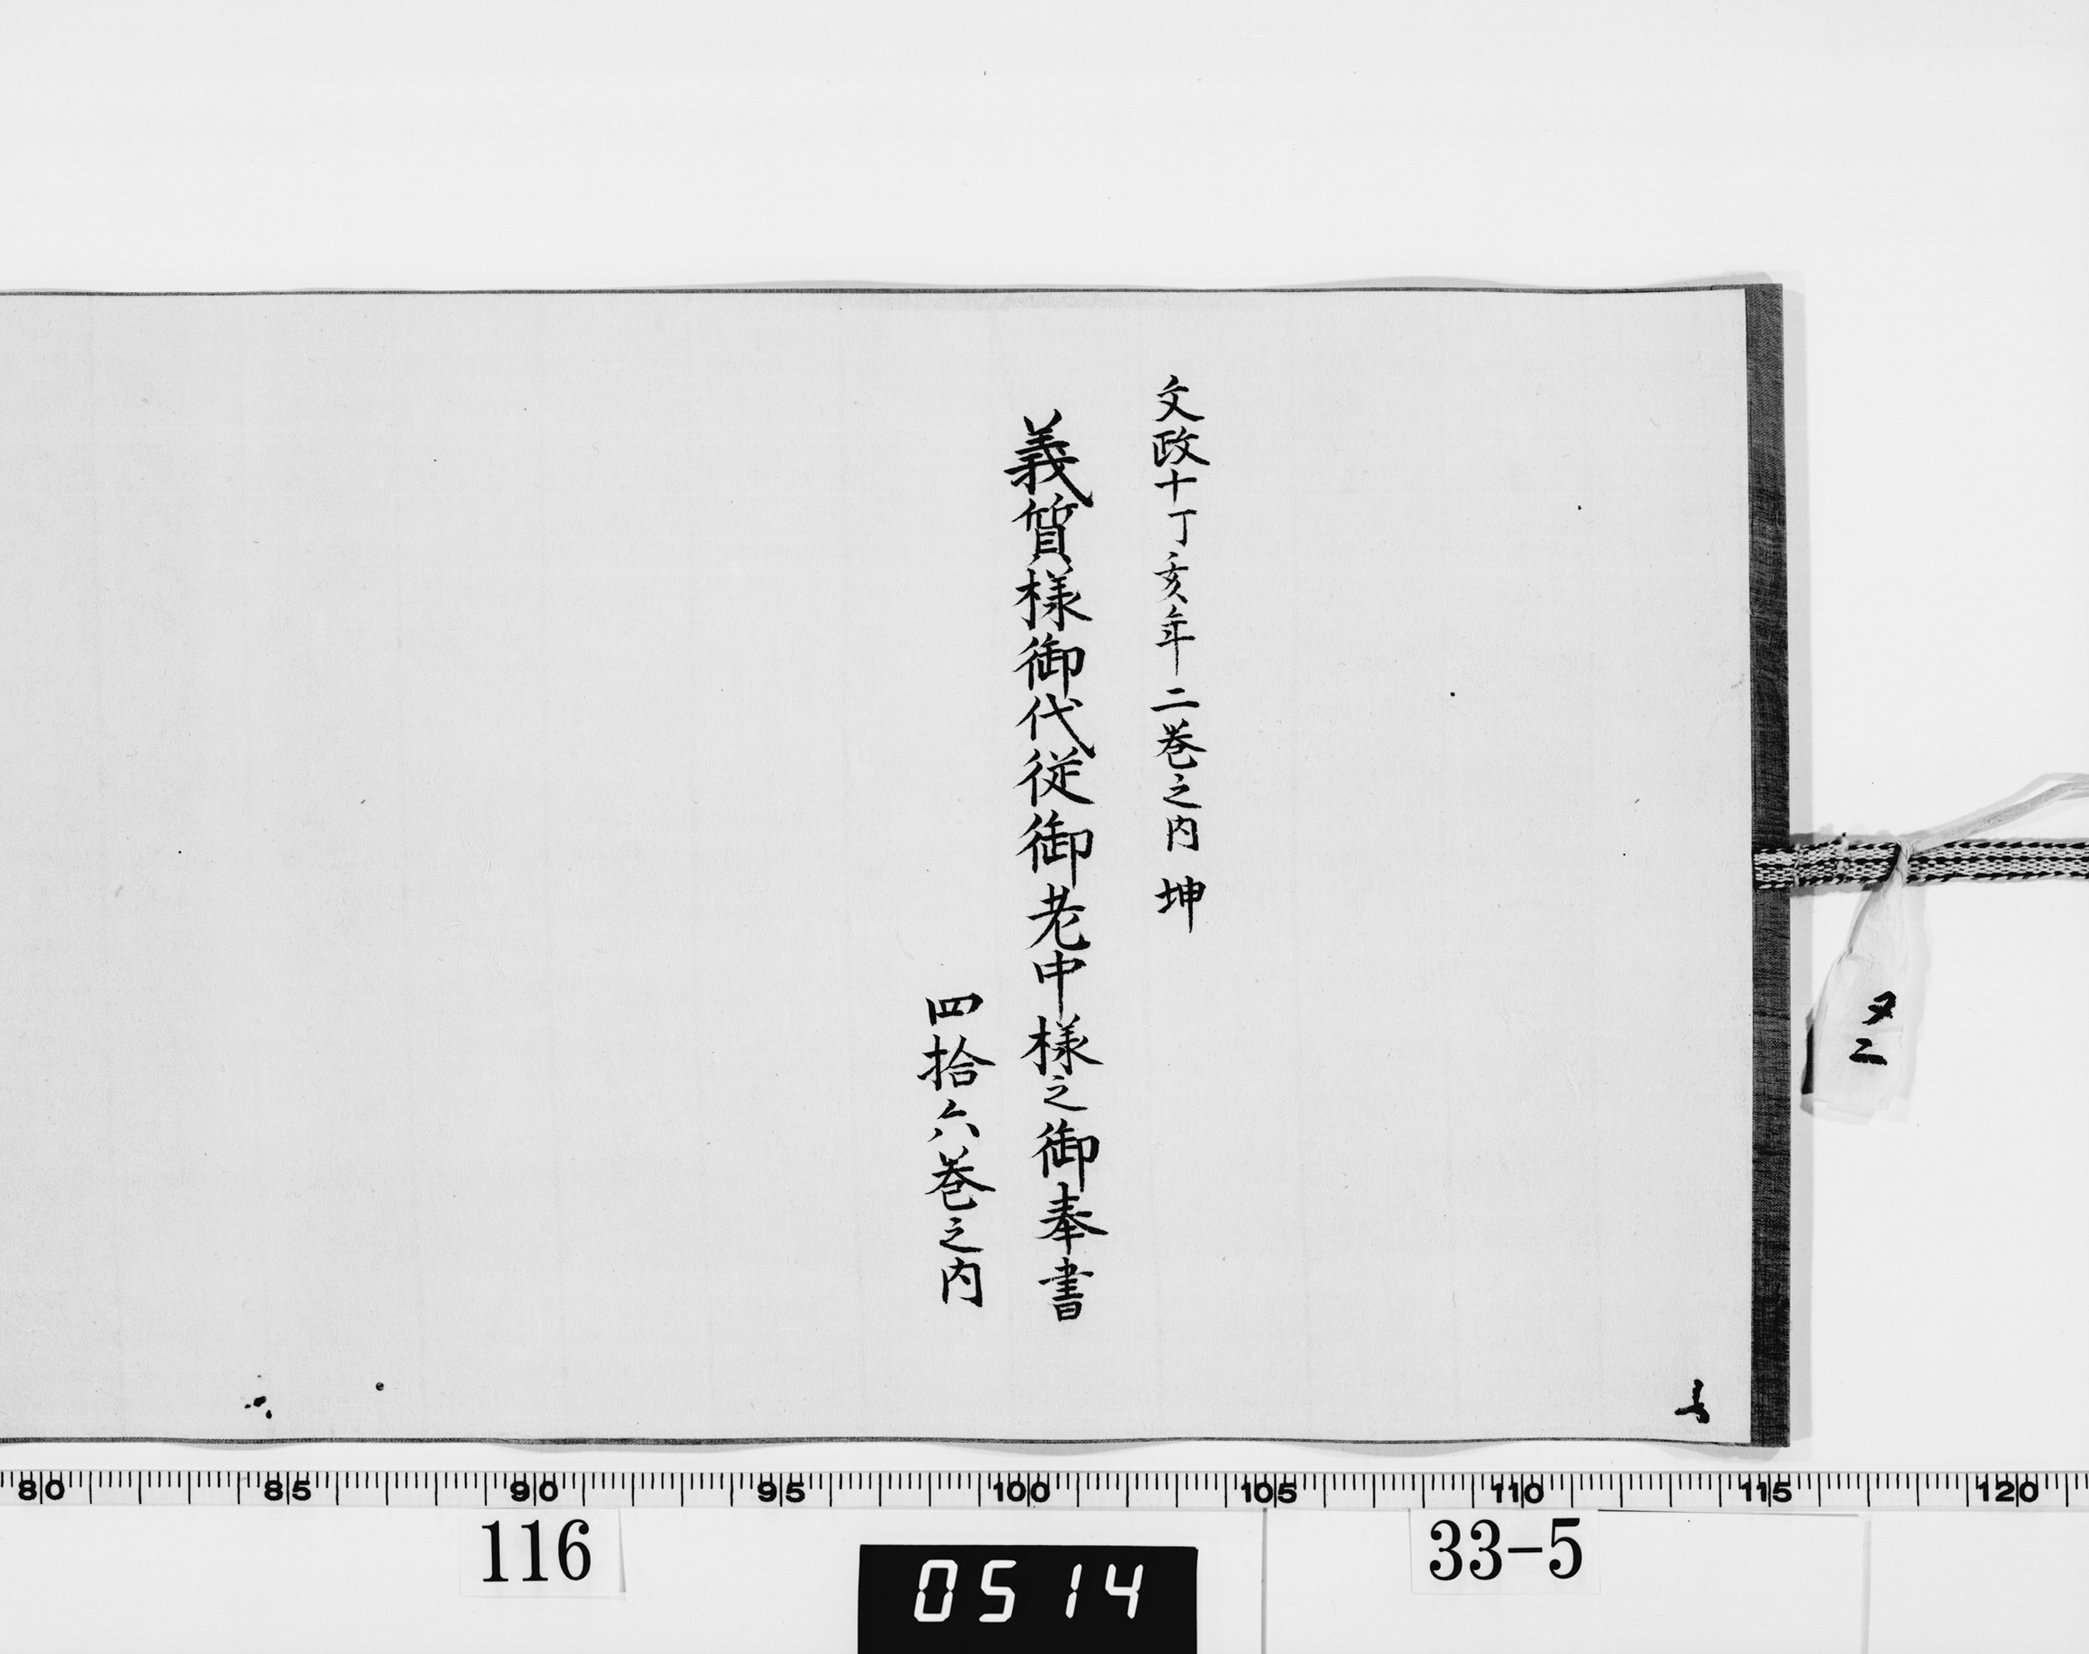 文政十丁亥年二巻之内 坤
義質様御代従御老中様之御奉書
四拾六巻之内
タ二
80 85 90 95 100 105 110 115 120
116
0514
33-5